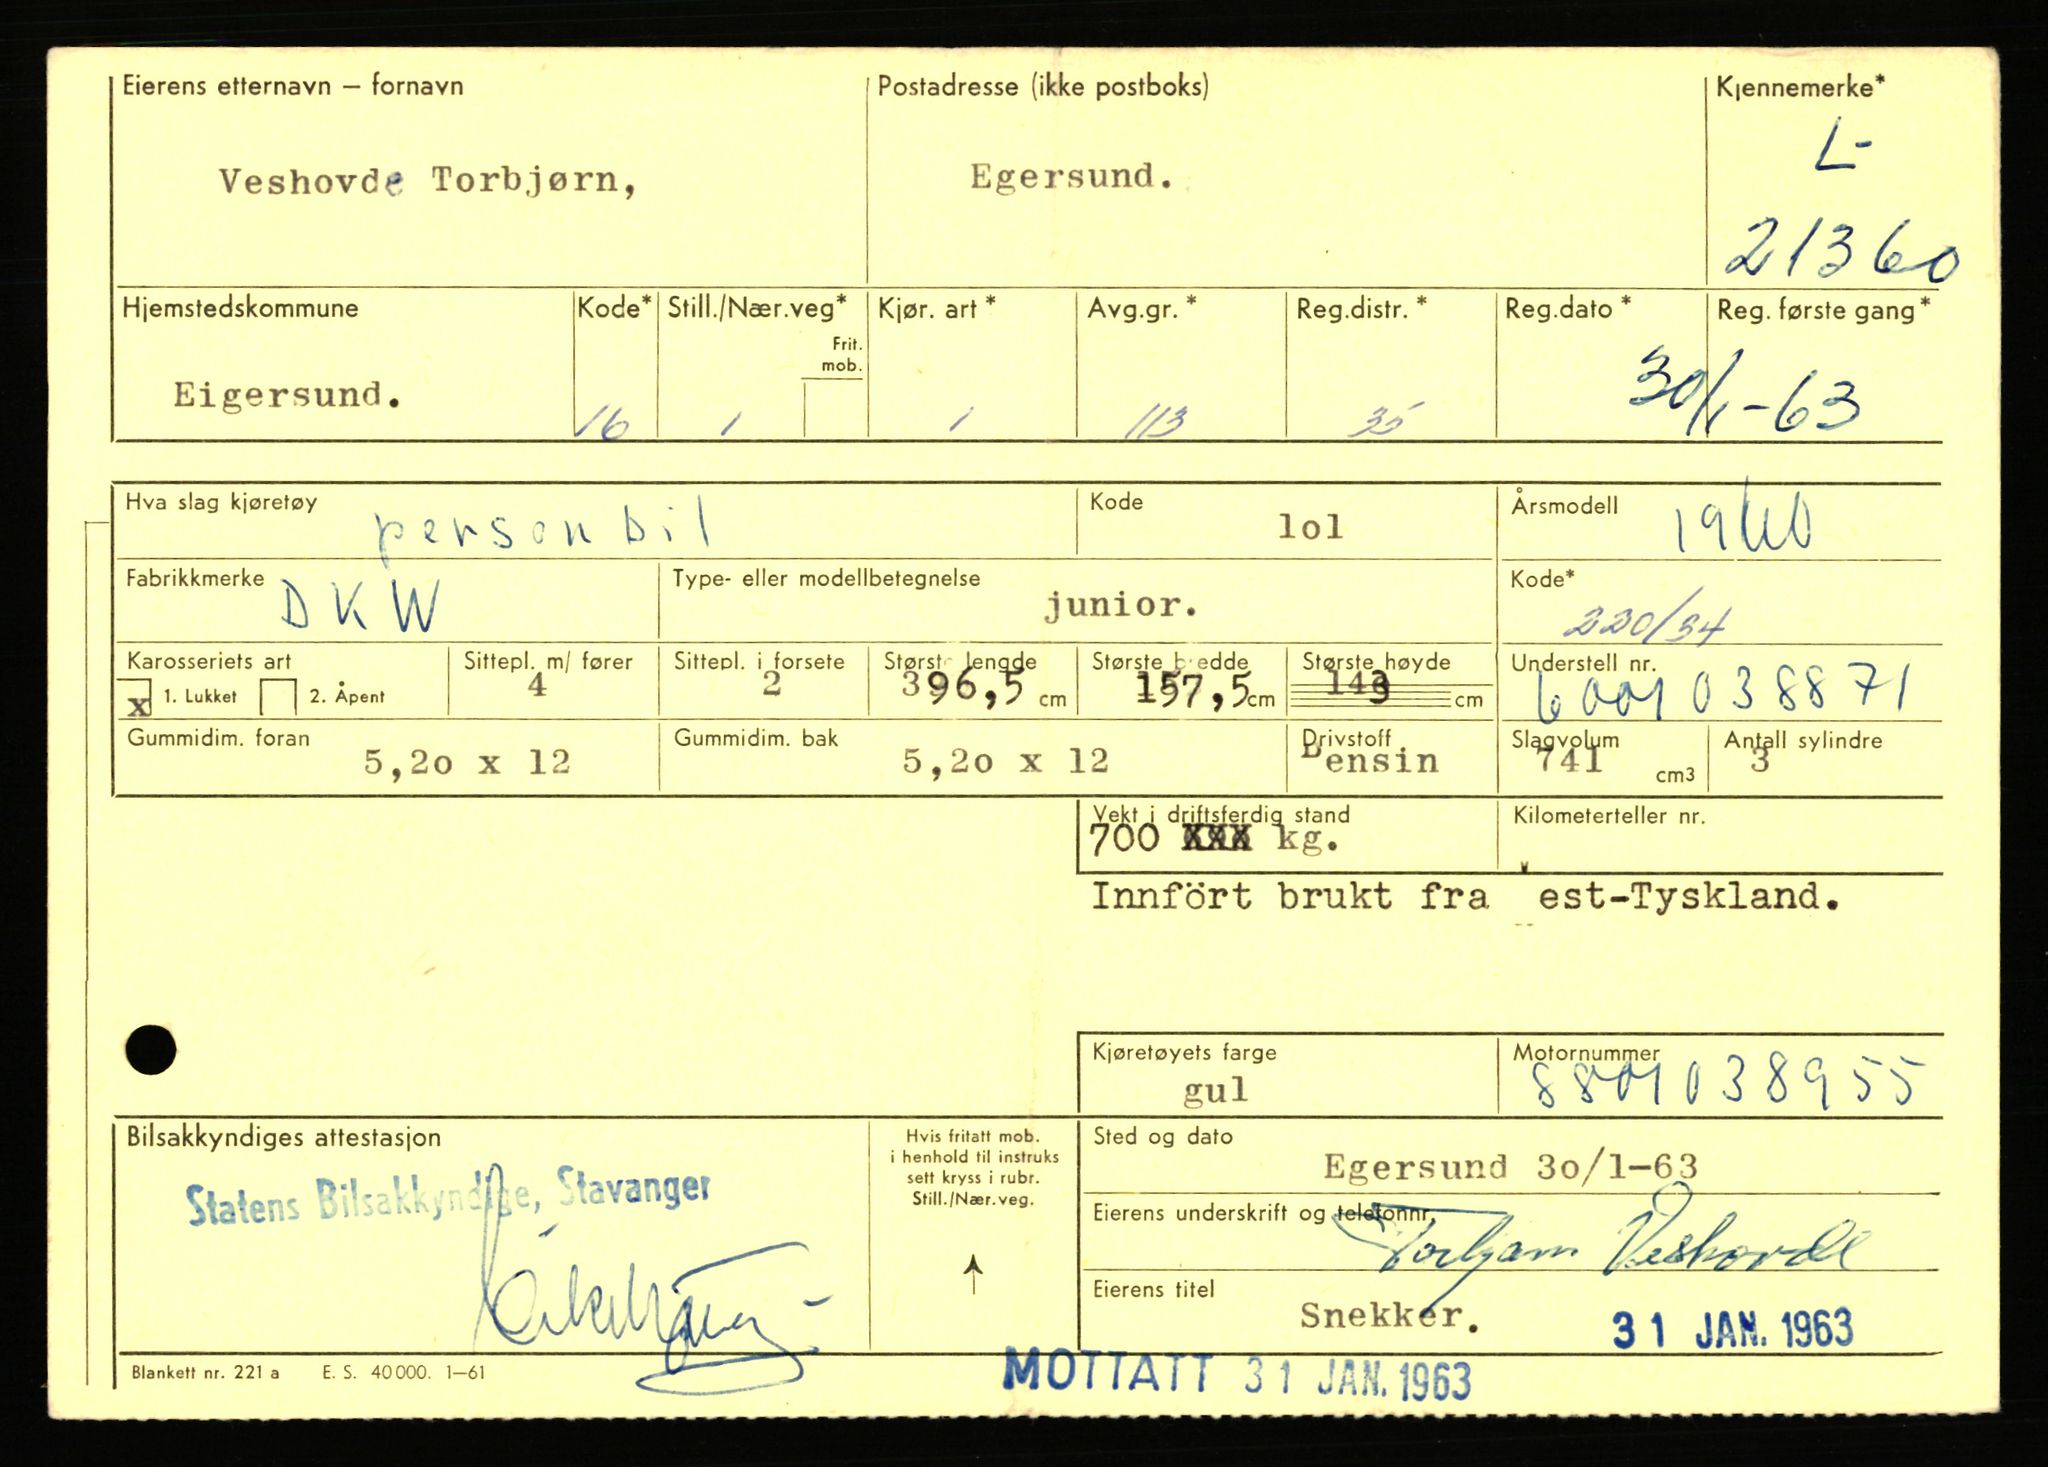 Eierens etternavn – fornavn Postadresse (ikke postboks) Kjennemerke*
Veshovde Torbjørn, Egersund. L-
21360
Hjemstedskommune Kode* Still./Nær.veg* Kjør. art* Avg.gr.* Reg.distr.* Reg.dato* Reg. første gang*
Frit.
mob.
Eigersund. 16 1 1 113 35 30/1-63
Hva slag kjøretøy personbil Kode lol Årsmodell 1960
Fabrikkmerke DKW Type- eller modellbetegnelse junior. Kode* 220/34
Karosseriets art Sittepl. m/ fører Sittepl. i forsete Største lengde Største bredde Største høyde Understell nr.
x 1. Lukket 2. Åpent 4 2 396,5 cm 157,5 cm 143 cm 6001038871
Gummidim. foran Gummidim. bak Drivstoff Slagvolum Antall sylindre
5,2o x 12 5,2o x 12 Bensin 741 cm3 3
Vekt i driftsferdig stand Kilometerteller nr.
700 XXX kg.
Innført brukt fra Vest-Tyskland.
Kjøretøyets farge Motornummer
gul 8801038955
Bilsakkyndiges attestasjon Hvis fritatt mob. Sted og dato
i henhold til instruks
sett kryss i rubr.
Still./Nær.veg.
Egersund 3o/1-63
Statens Bilsakkyndige, Stavanger
Eierens underskrift og telefonnr.
Torbjørn Veshovde
Eierens titel
Snekker. 31 JAN. 1963
Blankett nr. 221 a E. S. 40 000. 1–61 MOTTATT 31 JAN. 1963